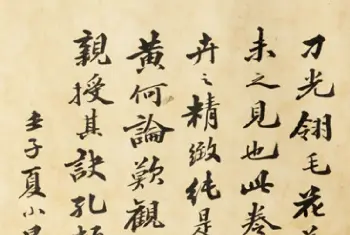 刀光翎毛花
未之見也此卷
卉之精緻純是
黃何論歎觀
親授其訣孔
壬子夏小